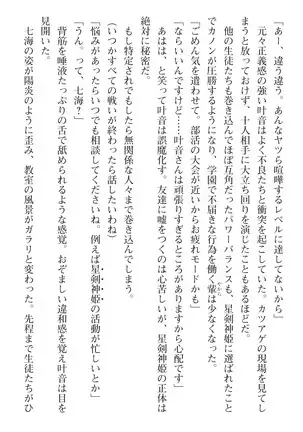 「あー、違う違う。あんなヤツら喧嘩するレベルに達してないから」
元々正義感の強い叶音はよく不良たちと衝突を起こしていた。カツアゲの現場を見てし
まうと放っておけず、十人相手に大立ち回りを演じたこともあるほどだ。
他の生徒たちも巻き込んでほぼ互角だったパワーバランスも、星剣神姫に選ばれたこと
でカノンが圧勝するようになり、学園で不届きな行為を働く輩は少なくなっている。
「ごめん気を遣わせて。部活の大会が近いからお疲れモードかも」
「ならいいんですけど……叶音さんは頑張りすぎるところがありますから心配です」
あはは、と笑って叶音は誤魔化す。友達に嘘をつくのは心苦しいが、星剣神姫の正体は
絶対に秘密だ。
もし特定されでもしたら無関係な人々まで巻き込んでしまう。
（いつかすべての戦いが終わったら話したいわね）
「悩みがあったらいつでも相談してくださいね。例えば星剣神姫の活動が忙しいとか」
「うん。って、七海？」
背筋を唾液たっぷりの舌で舐められるような感覚。おぞましい違和感を覚え叶音は目を
見開いた。
七海の姿が陽炎のように歪み、教室の風景がガラリと変わった。先程まで生徒たちがひ